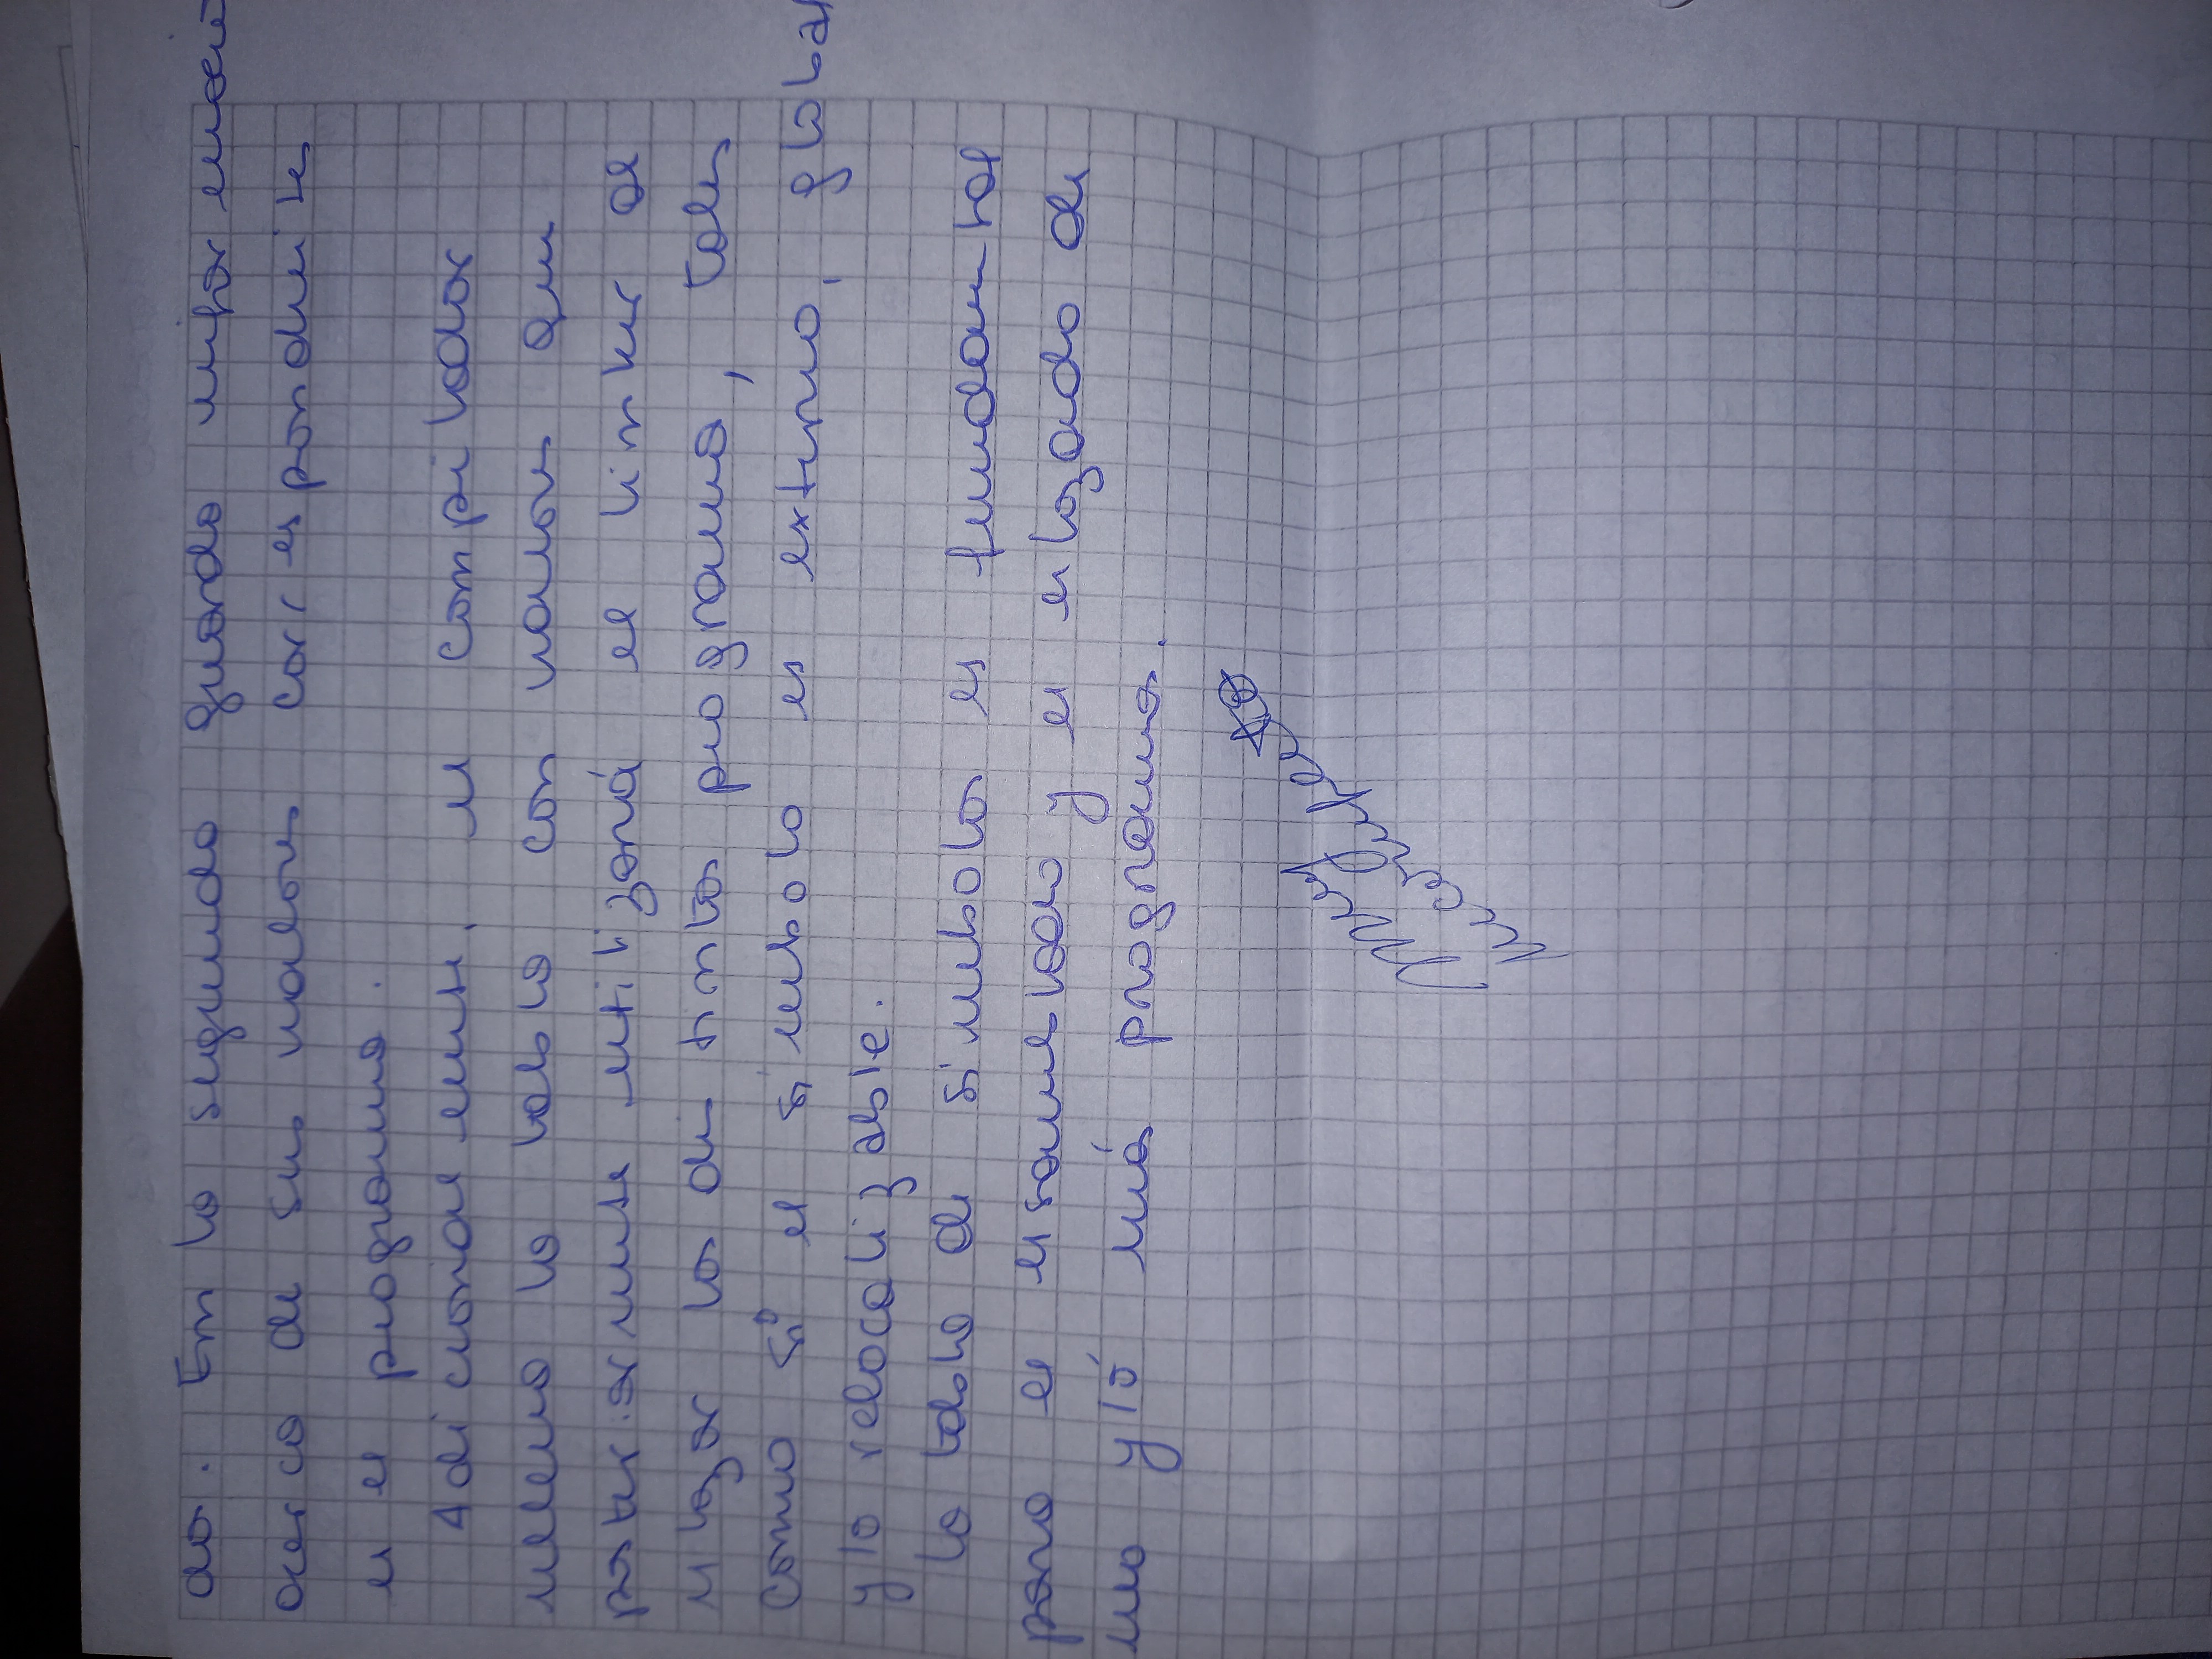 da. En la segunda guarda informació
acerca de sus valores correspondientes
en el programa.
Adicionalmente, el compilador
rellena la tabla con valores que
posteriormente utilizará el linker al
enlazar los distintos programas, tales
como si el símbolo es externo, global
y/o relocalizable.
La tabla de símbolos es fundamental
para el ensamblado y el enlazado de
uno y/ó más programas.
muy
incompleto